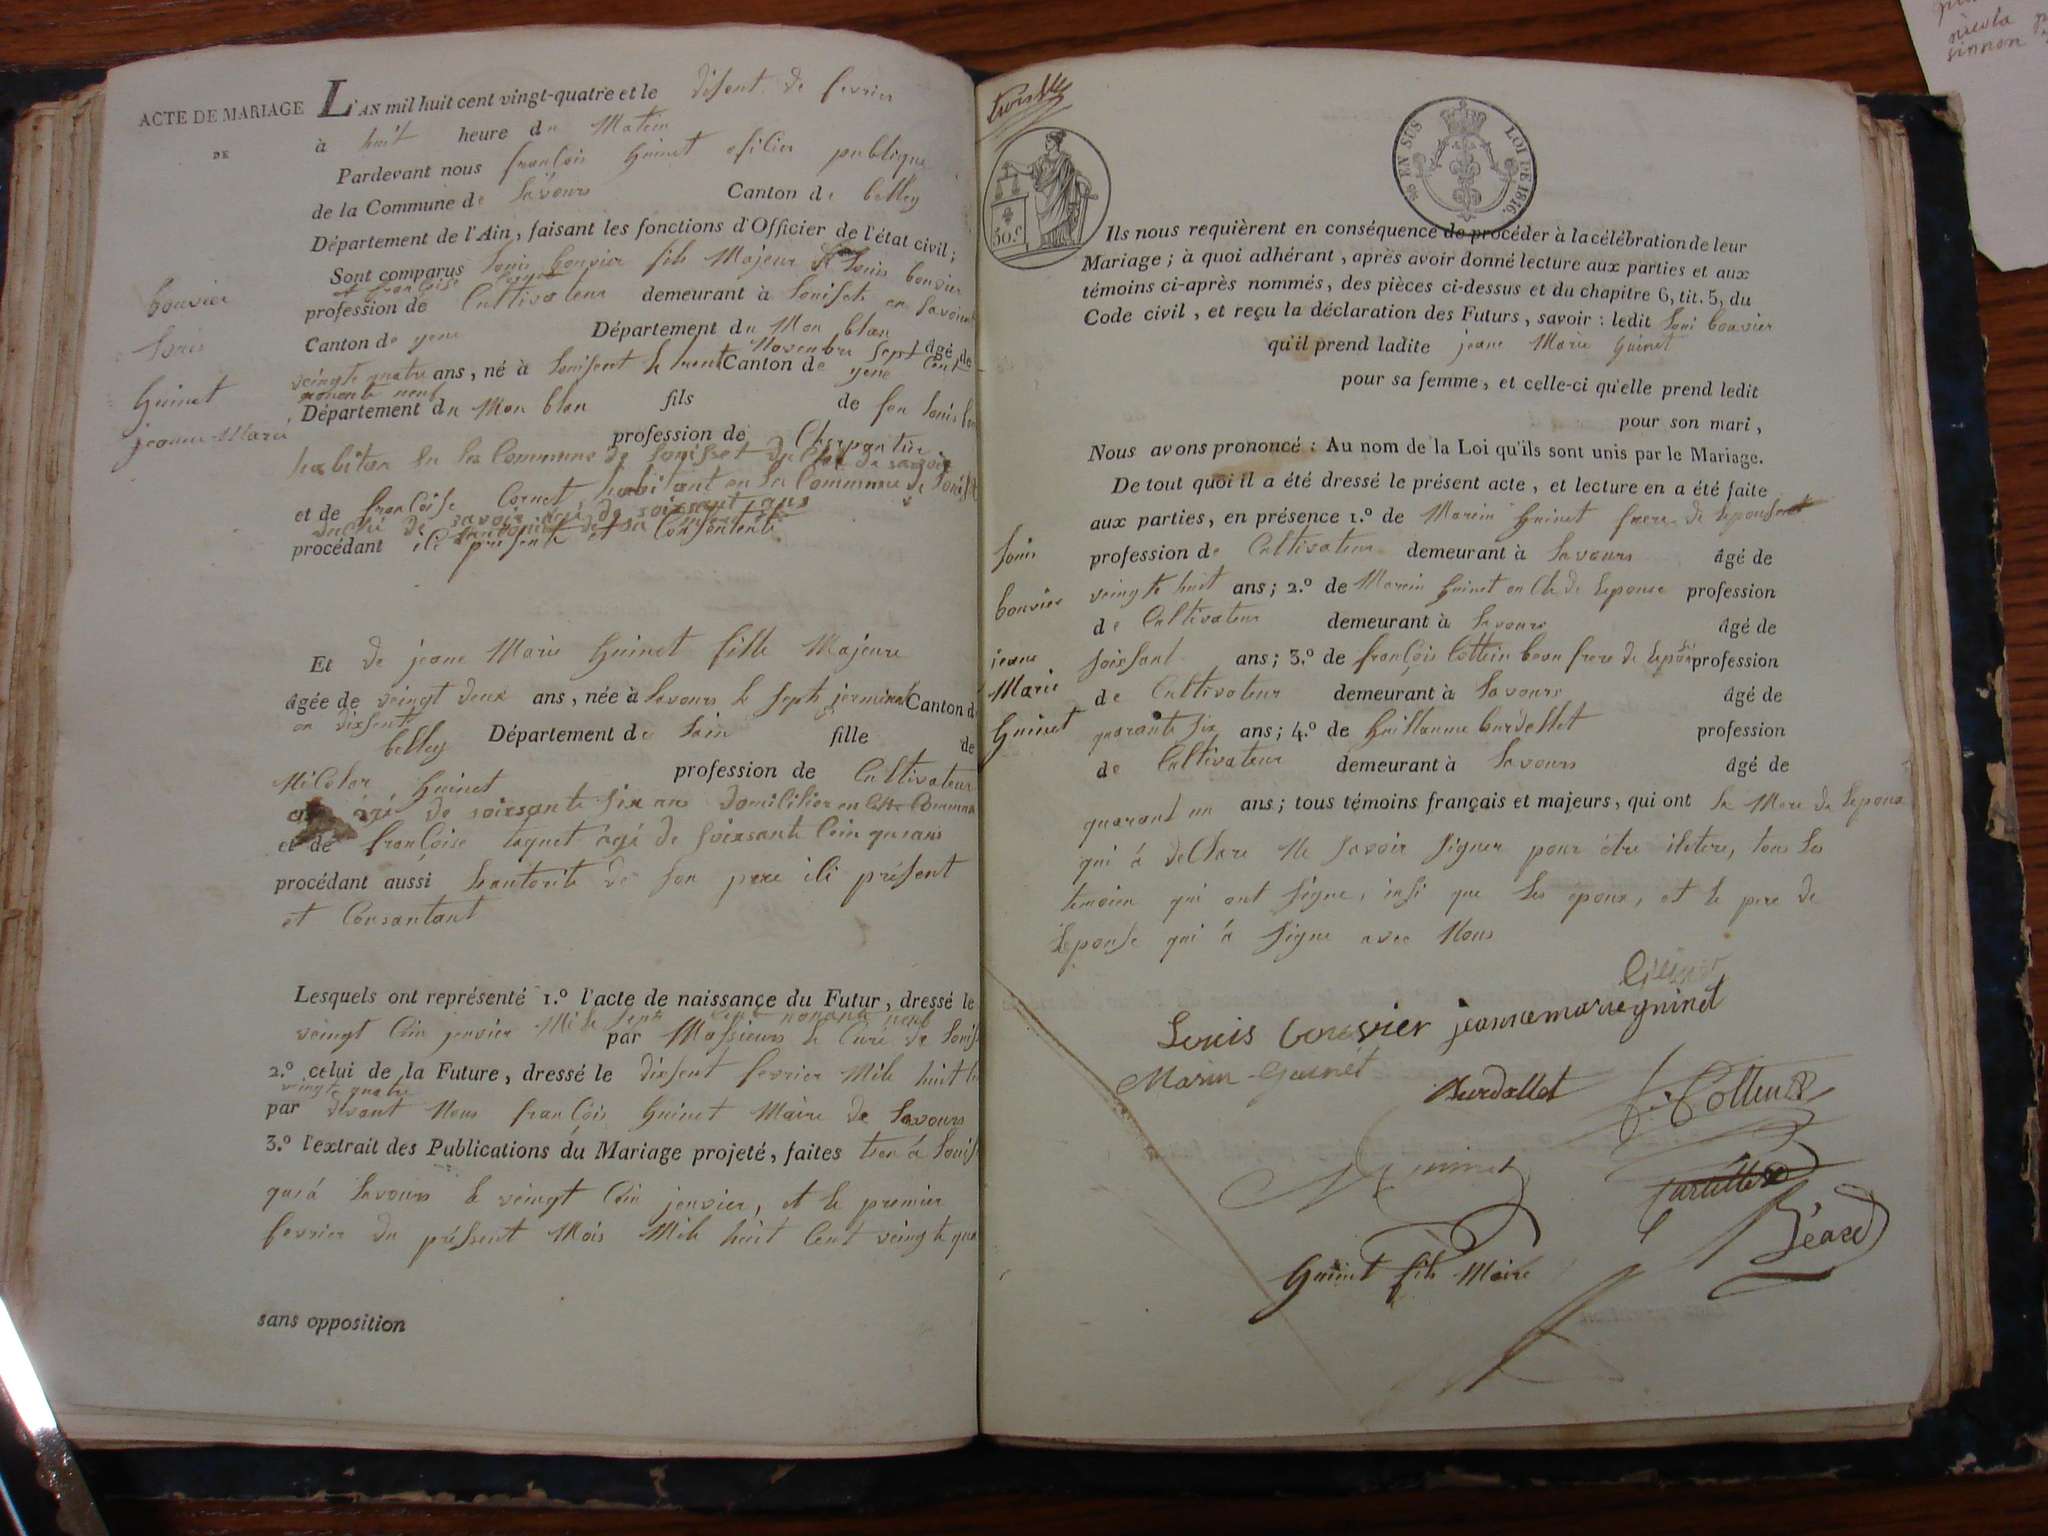 ACTE DE MARIAGE
DE
bouvier
Louis
Guinet
jeanne Marie
L'AN mil huit cent vingt-quatre et le disent de fevrier
à huit heure du Matin
Pardevant nous françois Guinet oficier publique
de la Commune de Savours Canton de belley
Département de l'Ain, faisant les fonctions d'Officier de l'état civil;
Sont comparus Louis bouvier fils Majeur de Louis bouvier
et francoise
profession de Cultivateur demeurant à en Savoie
Canton de yene Département du Mon blan
Novembre sept
veingte quatre ans, né à le Canton de yene Cent âgé de
nonante neuf
Département du Mon blan fils de feu Louis
profession de Charpantier
habitan en la Commune de de savoie
et de françoise Cornet habitant en la Commune de
duché de savoie agé de soixsant ans
procédant ici présente et Consentent
Et de jeane Marie Guinet fille Majeure
âgée de veingt deux ans, née à Savours le sept jerminal Canton de
an dixsente
belley Département de Lain fille de
Nicolas Guinet profession de Cultivateur
agé de soixsante six ans domicilier en cette Commune
et de françoise taquet agé de soixsante Cein qu ans
procédant aussi Lautorite de son pere ici présent
et Consantant
Lesquels ont représenté 1.º l'acte de naissance du Futur, dressé le
veingt Cin jenvier Mile sept Cent nonante neuf par Messieurs le Curé de
2.º celui de la Future, dressé le dixsent fevrier Mile huit
veingt quatre
par devant Nous françois Guinet Maire de Savours
3.º l'extrait des Publications du Mariage projeté, faites tan á
qua á Savours le veingt Cin jenvier, et le premier
fevrier du présent Mois Mile huit Cent veingte qua
sans opposition
EN SUS LOI DE 1816.
50.c
Ils nous requièrent en conséquence de procéder à la célébration de leur
Mariage; à quoi adhérant, après avoir donné lecture aux parties et aux
témoins ci-après nommés, des pièces ci-dessus et du chapitre 6, tit. 5, du
Code civil, et reçu la déclaration des Futurs, savoir: ledit Loui bouvier
qu'il prend ladite jeane Marie Guinet
pour sa femme, et celle-ci qu'elle prend ledit
pour son mari,
Nous avons prononcé: Au nom de la Loi qu'ils sont unis par le Mariage.
De tout quoi il a été dressé le présent acte, et lecture en a été faite
aux parties, en présence 1.º de Marin Guinet frere de
Louis
bouvier
jeane
Marie
Guinet
profession de Cultivateur demeurant à Savours âgé de
veingte huit ans; 2.º de Marin Guinet oncle de Lepouse profession
de Cultivateur demeurant à Savours âgé de
soixsant ans; 3.º de françois Cottein beau frere de profession
de Cultivateur demeurant à Savours âgé de
quarante six ans; 4.º de Guillaume burdellet profession
de Cultivateur demeurant à Savours âgé de
quarant un ans; tous témoins français et majeurs, qui ont la Mere de Lepoux
qui á declare Ne savoir signer pour étre iletere, tous les
temoien qui ont signe, insi que les epoux, et le pere de
Lepouse qui á signe avec Nous
Louis bouvier jeannemarieguinet
Marin Guinét
Burdallet
f. Cottin
Guinet
Béard
Guinet fils Maire